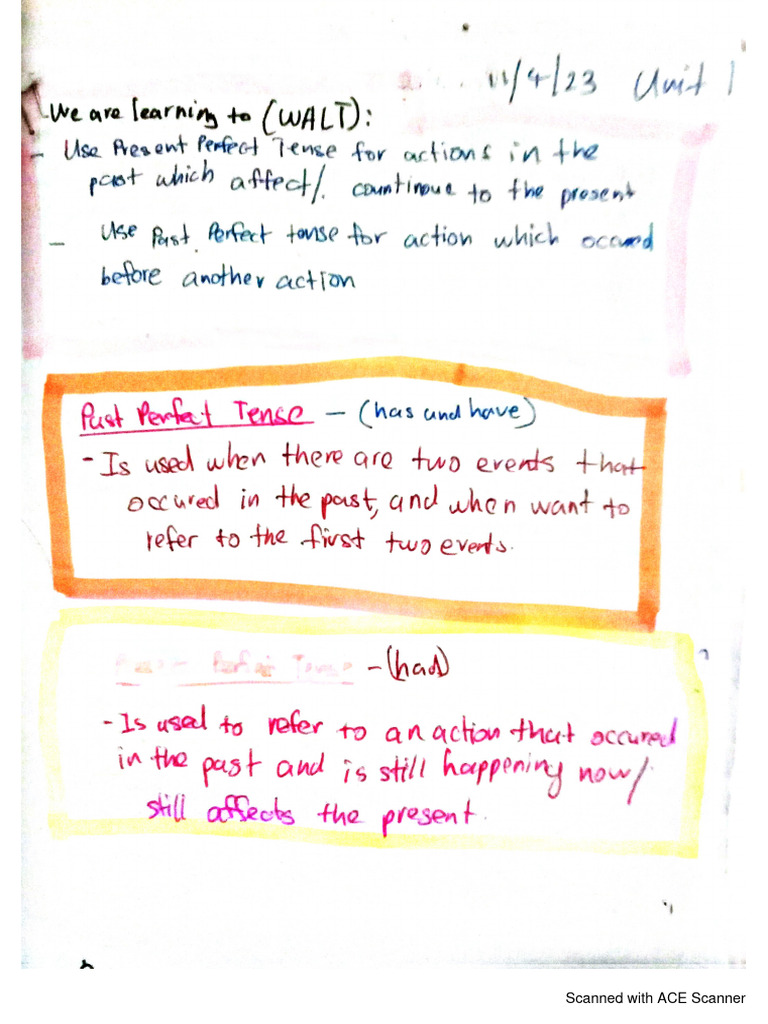 11/4/23 Unit 1
We are learning to (WALT):
- Use Present Perfect Tense for actions in the
past which affect/. countinoue to the present
- Use Past Perfect tense for action which occured
before another action
Past Perfect Tense - (has and have)
- Is used when there are two events that
occured in the past, and when want to
refer to the first two events.
Perfect Tense - (had)
- Is used to refer to an action that occured
in the past and is still happening now/
still affects the present.
Scanned with ACE Scanner